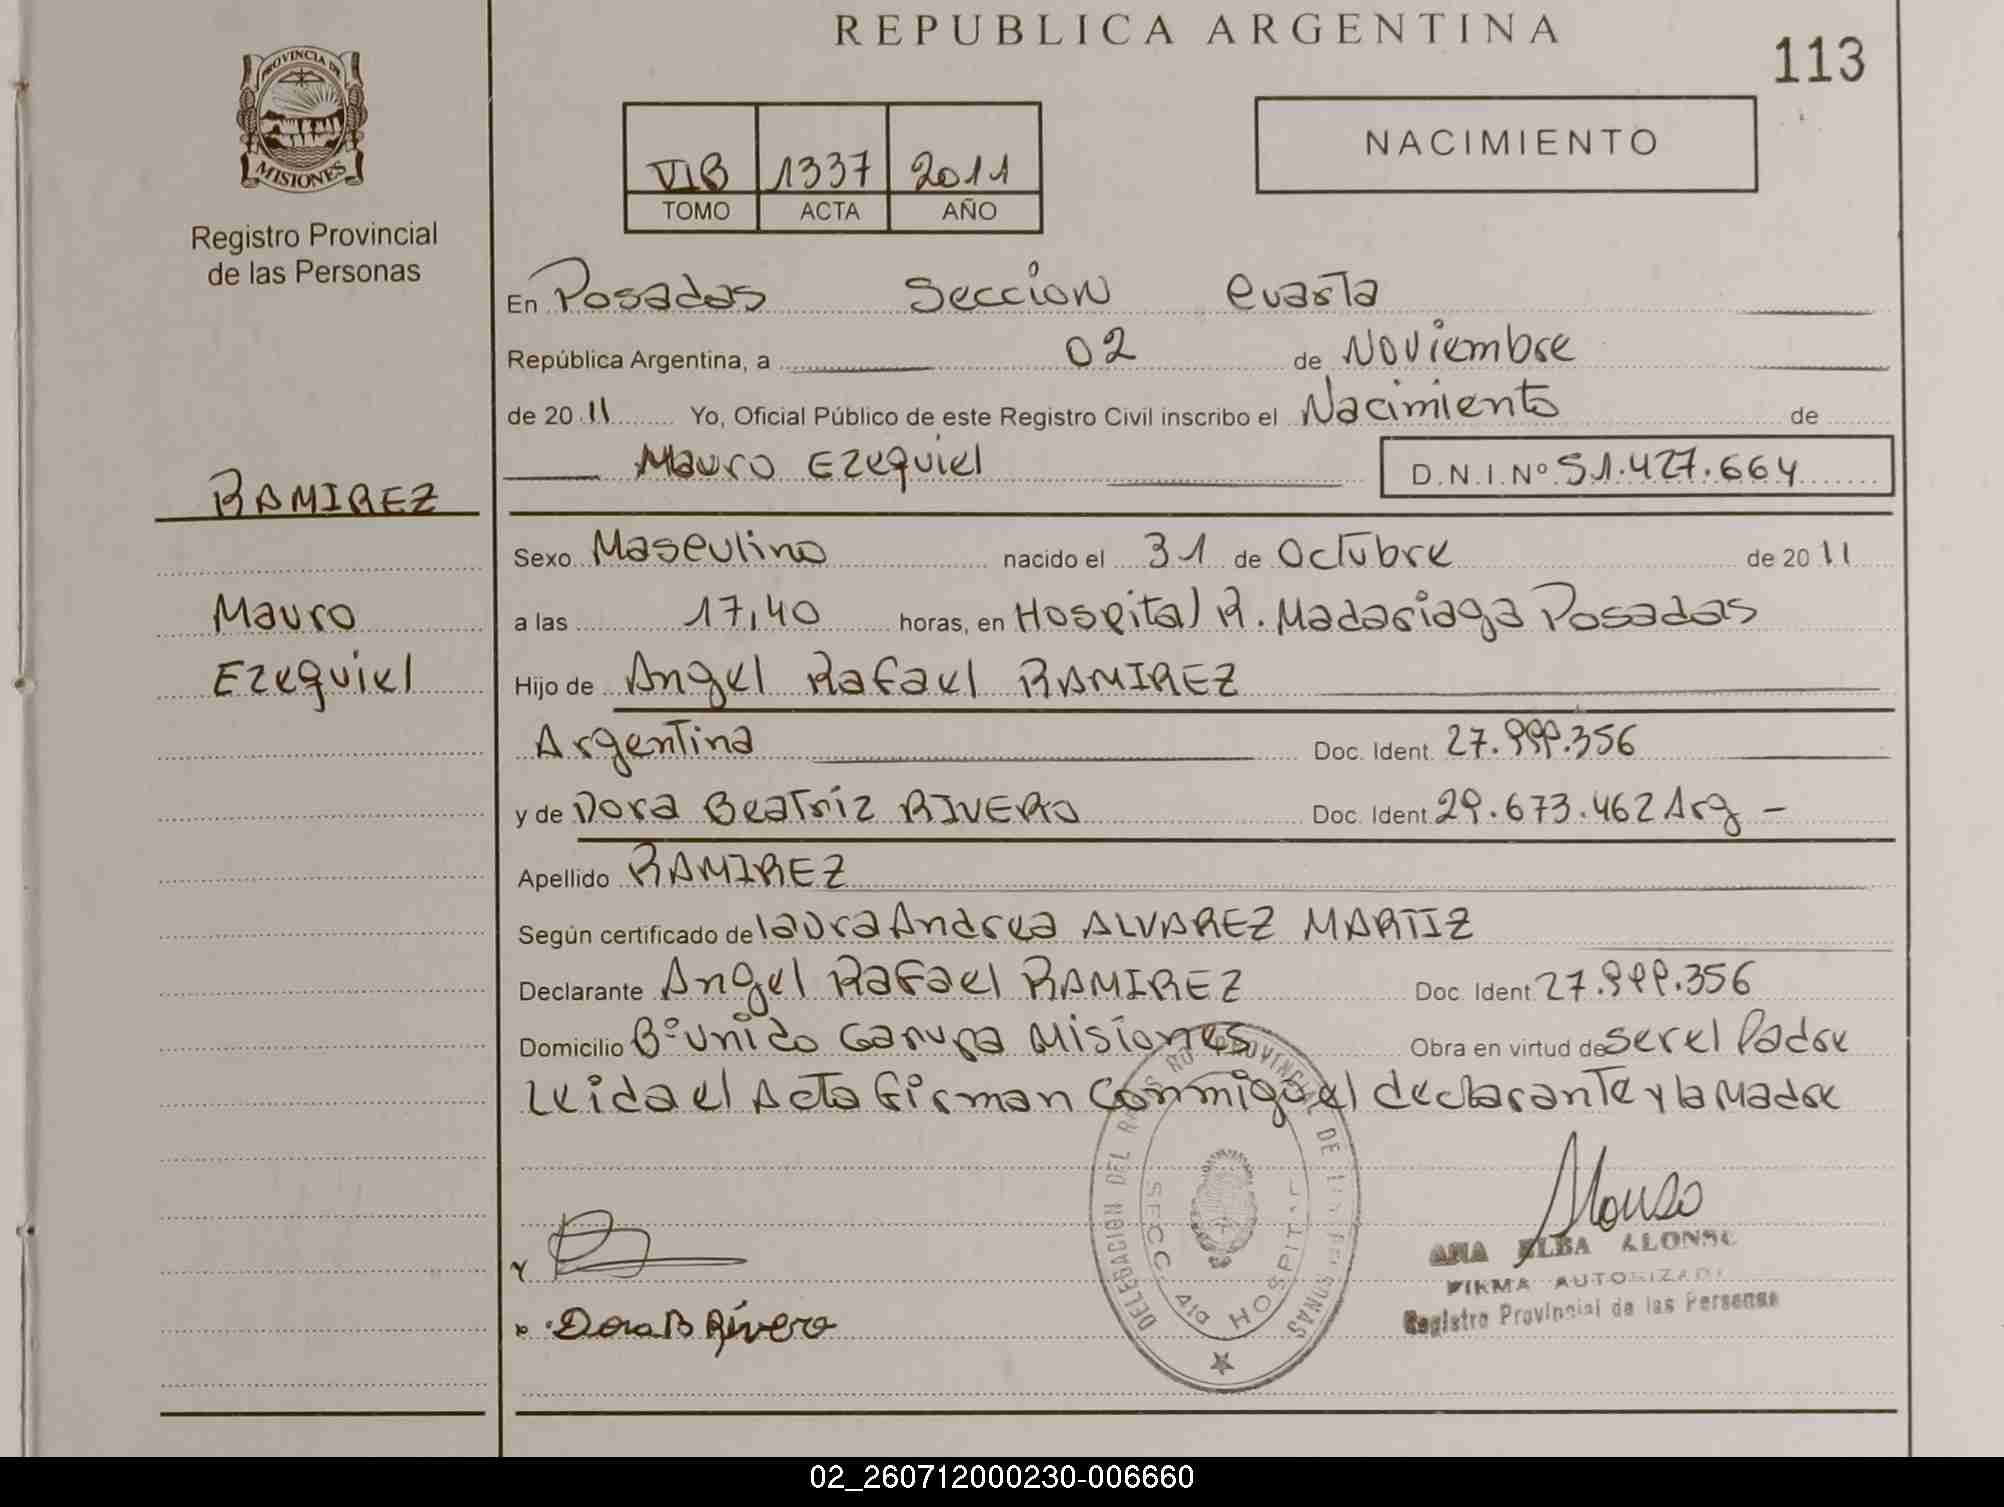 REPUBLICA ARGENTINA
113
PROVINCIA DE
MISIONES
Registro Provincial
de las Personas
VIB 1337 2011
TOMO ACTA AÑO
NACIMIENTO
En Posadas Sección Cuarta
República Argentina, a 02 de Noviembre
de 2011 Yo, Oficial Público de este Registro Civil inscribo el Nacimiento de
Mauro Ezequiel D.N.I.Nº 51.427.664
RAMIREZ
Mauro
Ezequiel
Sexo Masculino nacido el 31 de Octubre de 2011
a las 17,40 horas, en Hospital R. Madariaga Posadas
Hijo de Angel Rafael RAMIREZ
Argentina Doc. Ident. 27.999.356
y de Dora Beatriz RIVERO Doc. Ident. 29.673.462 Arg -
Apellido RAMIREZ
Según certificado de laura Andrea ALVAREZ MARTIZ
Declarante Angel Rafael RAMIREZ Doc. Ident. 27.999.356
Domicilio Bº unido Garupa Misiones Obra en virtud de ser el Padre
Leida el Acta firman Conmigo el declarante y la Madre
Dora B Rivero
DELEGACION DEL PROVINCIAL DE PERSONAS
SECC. 4ta HOSPITAL
Alonso
ANA ELBA ALONSO
FIRMA AUTORIZADA
Registro Provincial de las Personas
02_260712000230-006660